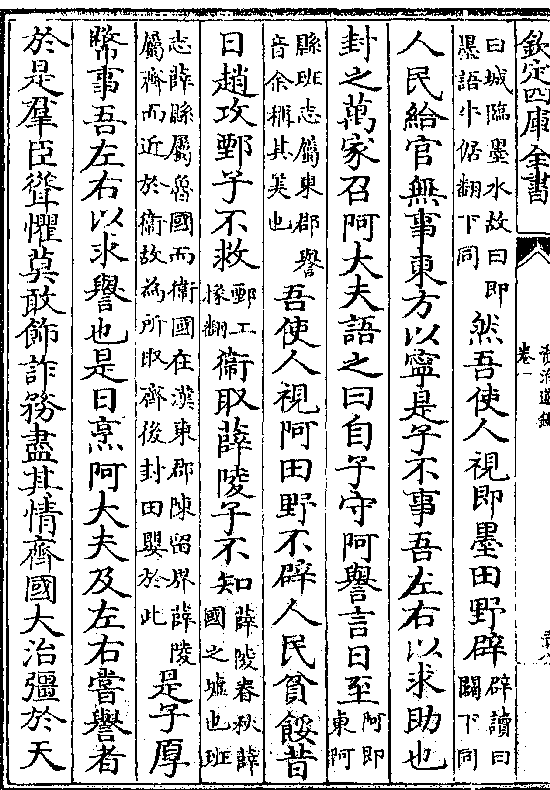 欽定四庫全書
資治通鑑
卷一
曰城臨墨水故曰即
墨語牛倨翻下同
然吾使人視即墨田野辟
辟讀曰
闢下同
人民給官無事東方以寧是子不事吾左右以求助也
封之萬家召阿大夫語之曰自子守阿譽言日至
阿即
東阿
縣班志屬東郡譽
音余稱其美也
吾使人視阿田野不辟人民貧餒昔
日趙攻鄄子不救
鄄工
掾翻
衞取薛陵子不知
薛陵春秋薛
國之墟也班
志薛縣屬魯國而衞國在漢東郡陳留界薛陵
屬齊而近於衞故為所取齊後封田嬰於此
是子厚
幣事吾左右以求譽也是日烹阿大夫及左右嘗譽者
於是羣臣聳懼莫敢飾詐務盡其情齊國大治彊於天